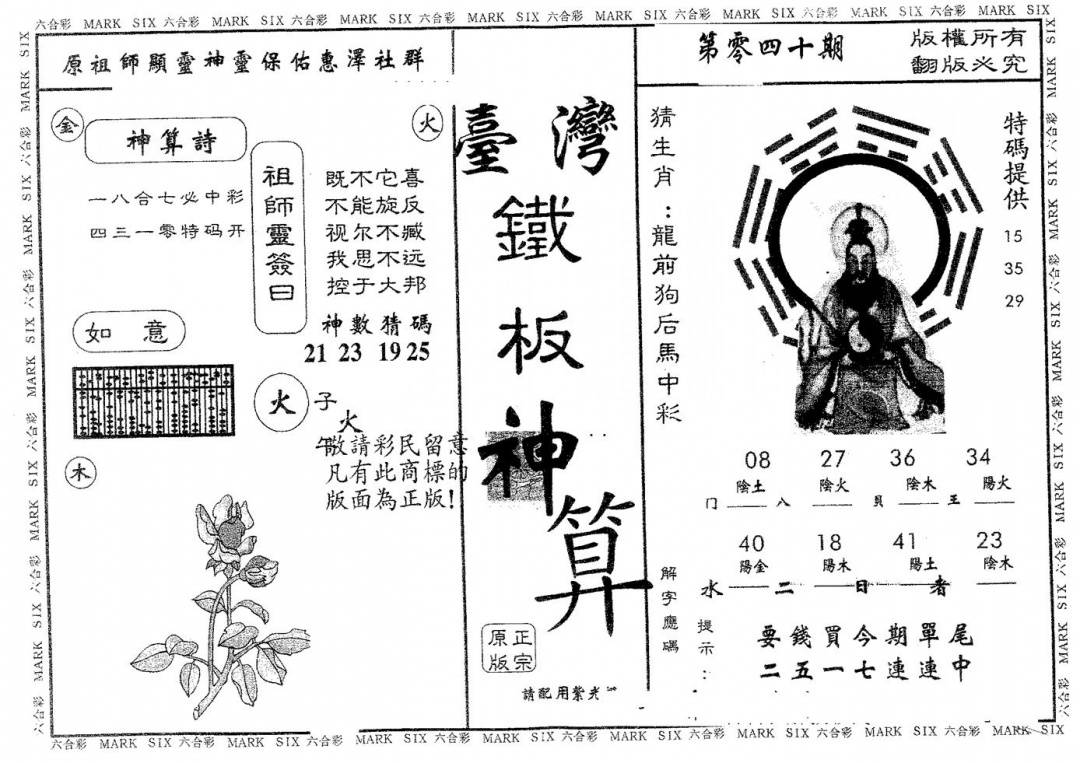 六合彩 MARK SIX 六合彩 MARK SIX 六合彩 MARK SIX 六合彩 MARK SIX 六合彩 MARK SIX 六合彩 MARK SIX 六合彩 MARK SIX 六合彩 MARK SIX
原祖師顯靈神靈保佑惠澤社群
金
神算詩
火
一八合七必中彩
四三一零特码开
祖師靈簽曰
既不它喜
不能旋反
视尔不臧
我思不远
控于大邦
神數猜碼
21 23 19 25
如意
火
子
火
午
木
敬請彩民留意
凡有此商標的
版面為正版!
臺灣
鐵
板
神
算
正宗
原版
請配用紫光
第零四十期
版權所有
翻版必究
猜生肖:龍前狗后馬中彩
特碼提供
15
35
29
08 27 36 34
陰土 陰火 陰木 陽火
门 八 貝 王
40 18 41 23
陽金 陽木 陽土 陰木
水 二 日 者
解字應碼
提示:
要錢買今期單尾
二五一七連連中
六合彩 MARK SIX 六合彩 MARK SIX 六合彩 MARK SIX 六合彩 MARK SIX 六合彩 MARK SIX 六合彩 MARK SIX 六合彩 MARK SIX 六合彩 MARK SIX